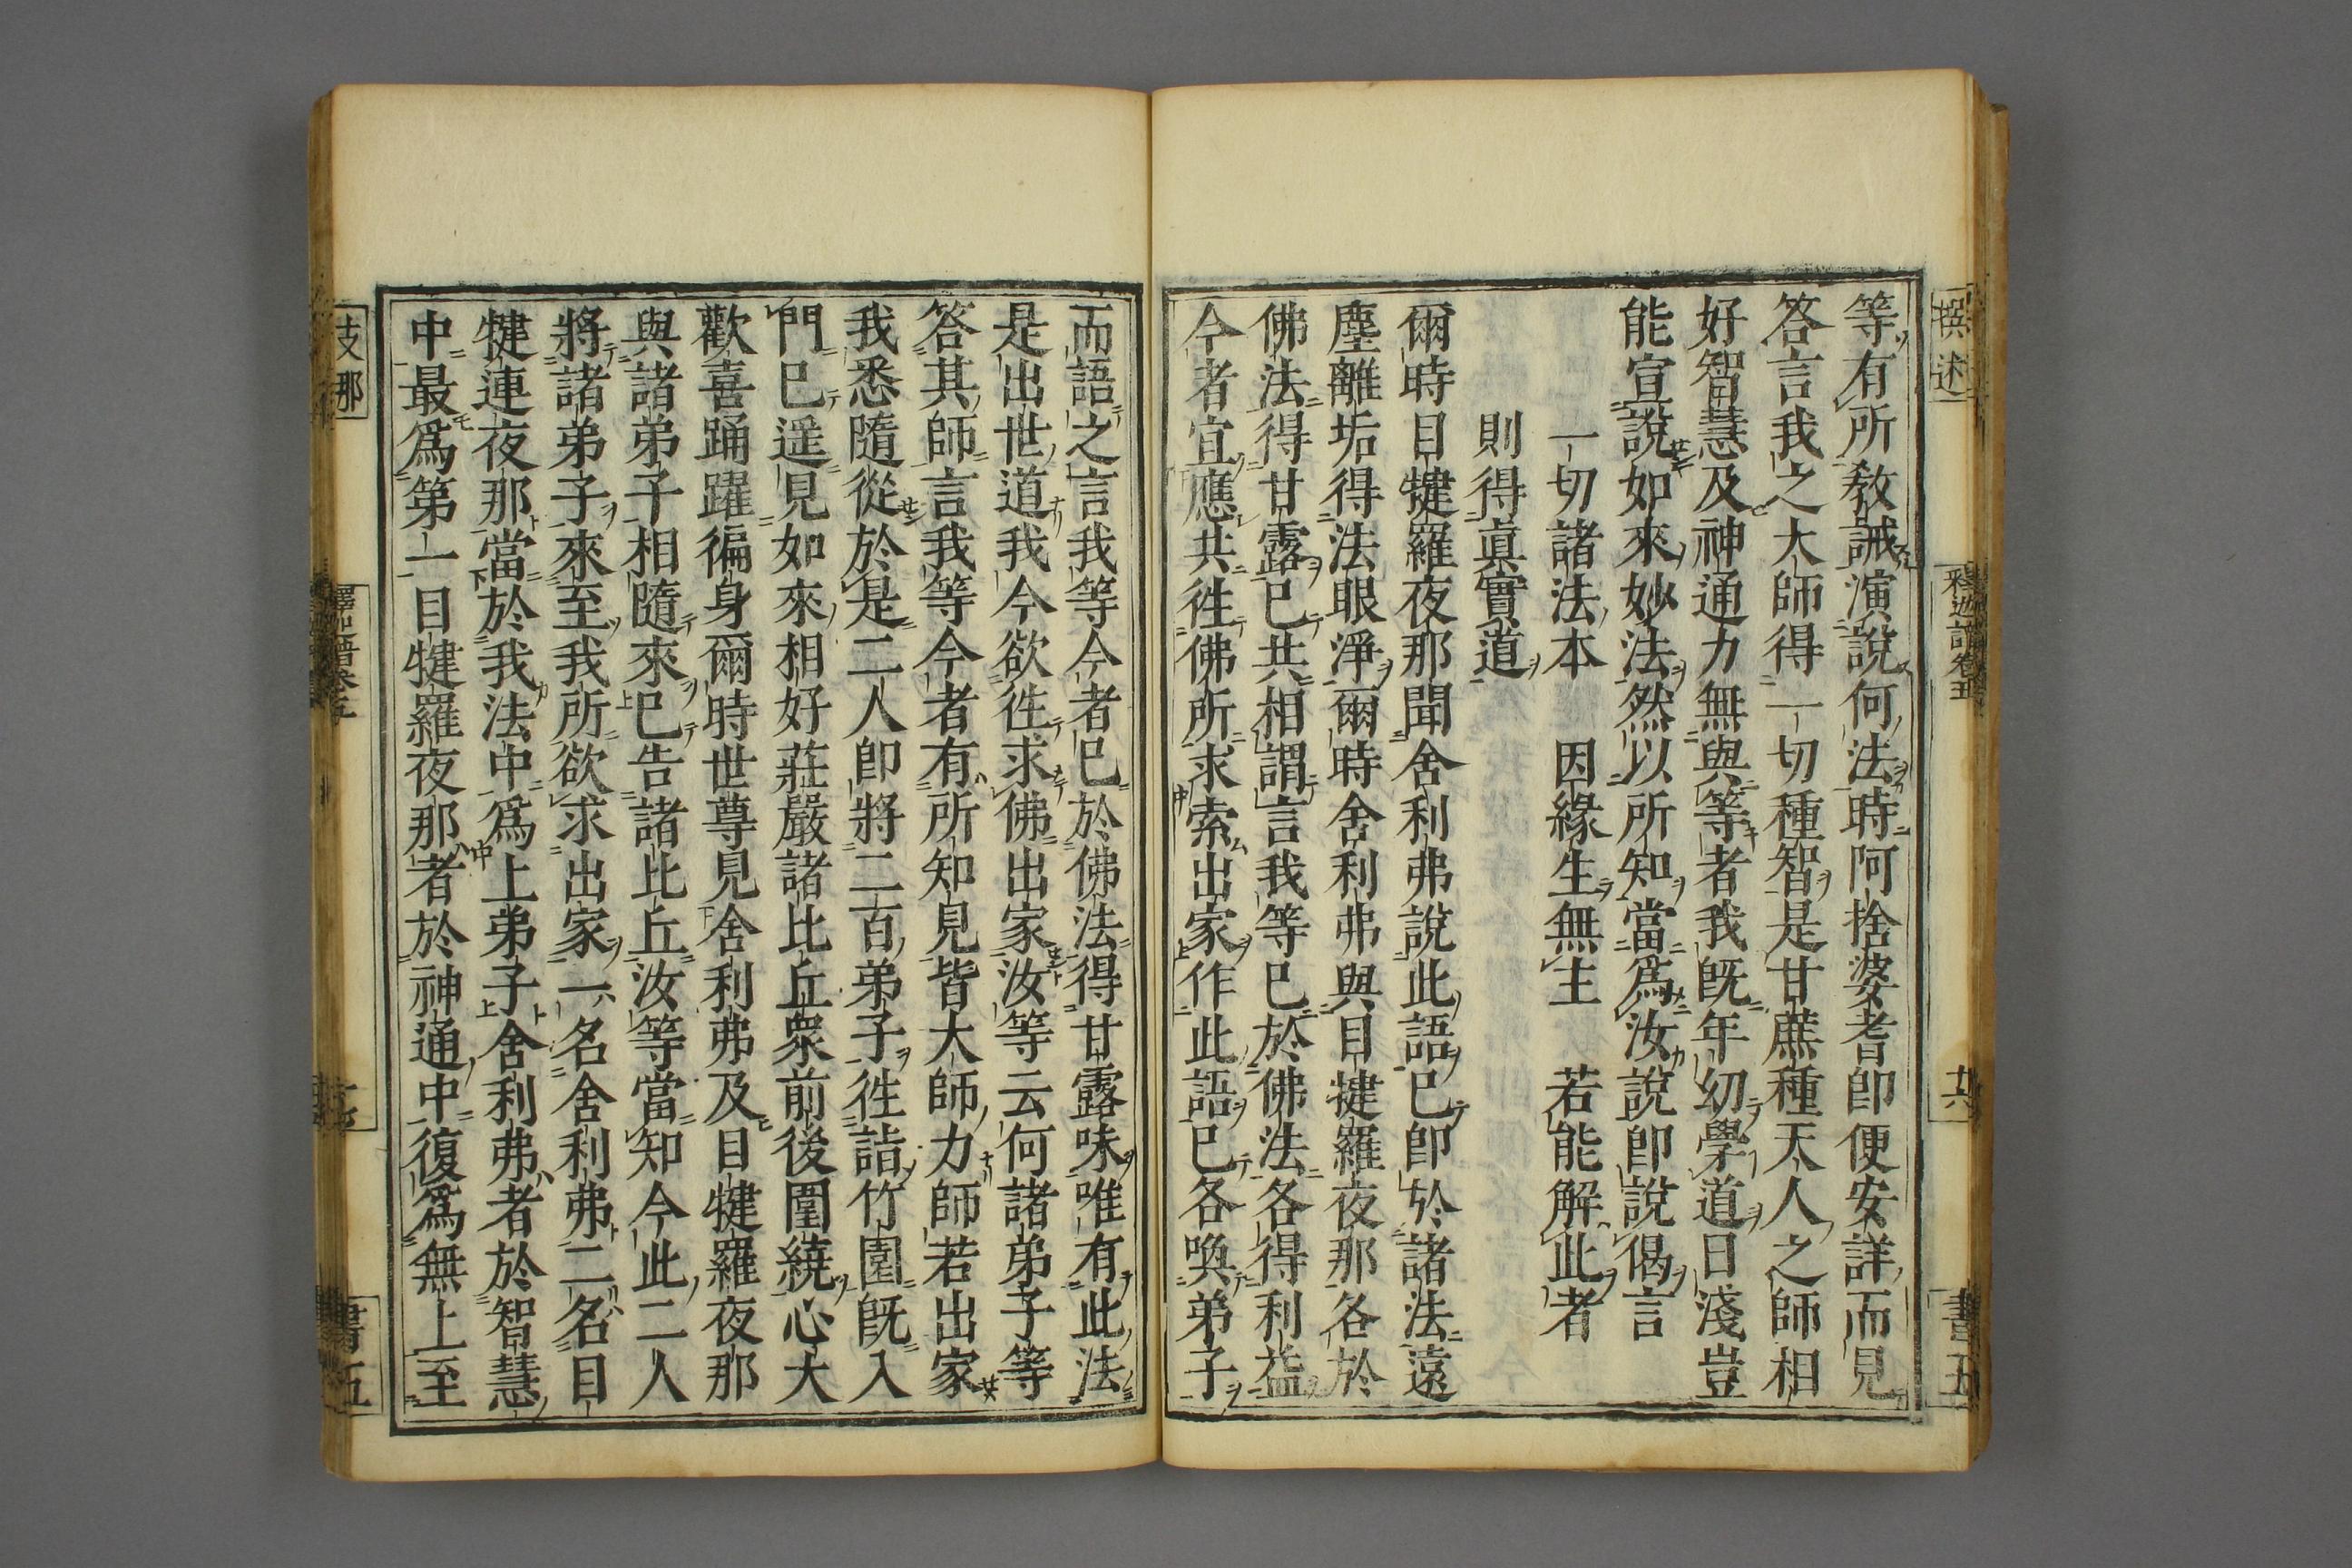 撰述
釋迦譜卷五
十六
書五
等有所教誡演說何法時阿捨婆耆即便安詳而見
答言我之大師得一切種智是甘蔗種天人之師相
好智慧及神通力無與等者我既年幼學道日淺豈
能宣說如來妙法然以所知當為汝說即說偈言
一切諸法本　因緣生無主　若能解此者
則得真實道
爾時目犍羅夜那聞舍利弗說此語已即於諸法遠
塵離垢得法眼淨爾時舍利弗與目犍羅夜那各於
佛法得甘露已共相謂言我等已於佛法各得利益
今者宜應共往佛所求索出家作此語已各喚弟子
而語之言我等今者已於佛法得甘露味唯有此法
是出世道我今欲往求佛出家汝等云何諸弟子等
答其師言我等今者有所知見皆大師力師若出家
我悉隨從於是二人即將二百弟子往詣竹園既入
門已遥見如來相好莊嚴諸比丘眾前後圍繞心大
歡喜踊躍徧身爾時世尊見舍利弗及目犍羅夜那
與諸弟子相隨來已告諸比丘汝等當知今此二人
將諸弟子來至我所欲求出家一名舍利弗二名目
犍連夜那當於我法中為上弟子舍利弗者於智慧
中最為第一目犍羅夜那者於神通中復為無上至
支那
釋迦譜卷五
書五